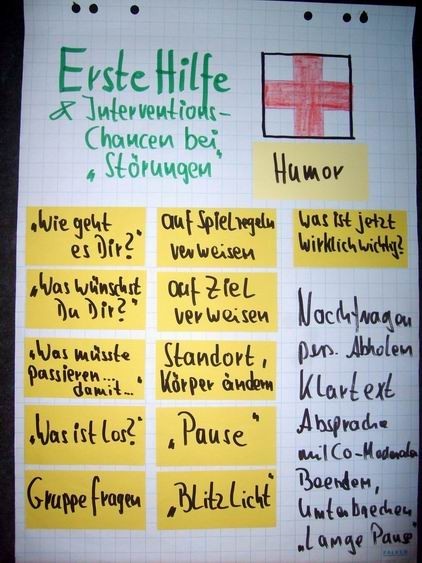 Erste Hilfe
& Interventions-
Chancen bei
"Störungen"
Humor
"Wie geht
es Dir?"
"Was wünschst
Du Dir?"
"Was müsste
passieren...
damit..."
"Was ist los?"
Gruppe fragen
auf Spielregeln
verweisen
auf Ziel
verweisen
Standort,
Körper ändern
"Pause"
"Blitzlicht"
was ist jetzt
wirklich wichtig?
Nachfragen
pers. Abholen
Klartext
Absprache
mit Co-Moderator
Beenden,
Unterbrechen
"Lange Pause"